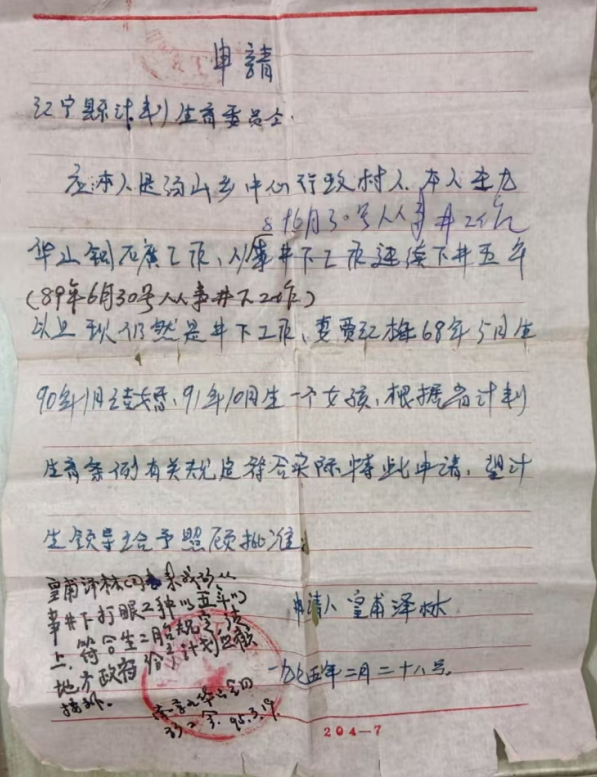 申請
江宁县计划生育委员会.
兹本人是汤山乡中心行政村人.本人在九
89年6月30号人从事井工作
华山铜石广工作,从事井下工作连续下井五年
(89年6月30号人从事井下工作)
以上现仍然是井下工作,妻贾红梅68年5月生
90年1月结婚.91年10月生一个女孩.根据省计划
生育条例有关规定符合实际特此申请.望计
生领导给予照顾批准.
皇甫泽林同
事井下打眼工种"五年"以
上.符合生二胎规定.请
地方政府给予计划
申请人皇甫泽林
一九九五年二月二十八号.
95.3.19.
204-7